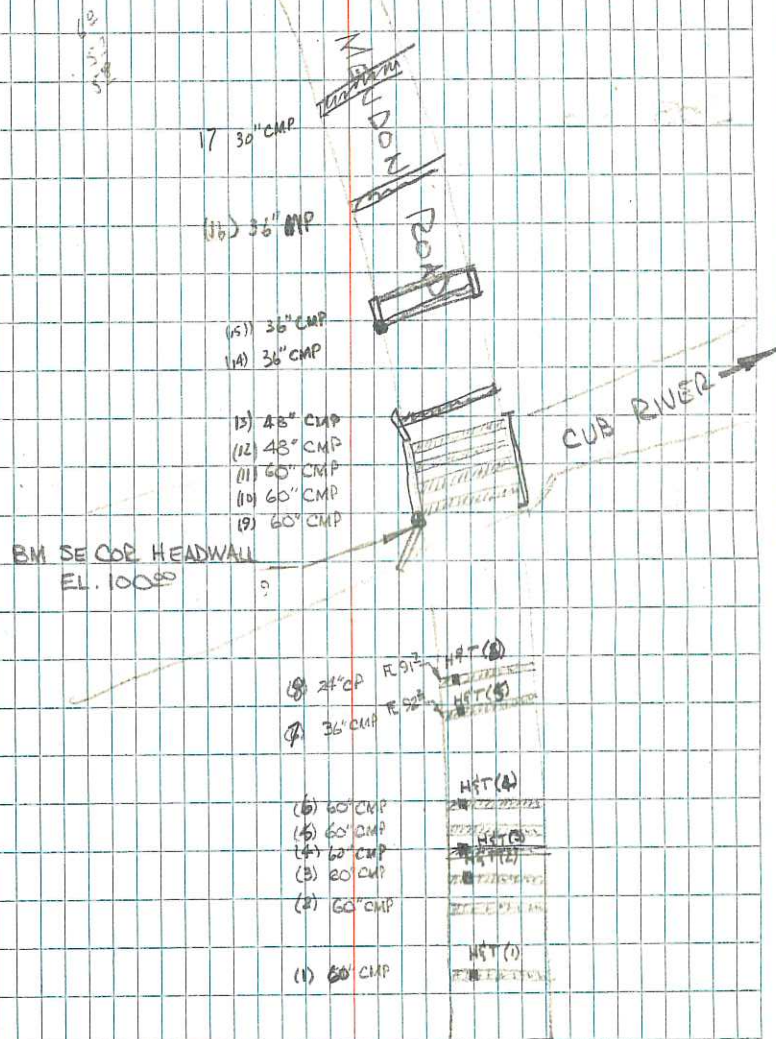 17 30" CMP
(16) 36" MP
ROAD
(15)) 36" CMP
(14) 36" CMP
13) 48" CMP
(12) 48" CMP
(11) 60" CMP
(10) 60" CMP
(9) 60" CMP
CUB RIVER
BM SE COR HEADWALL
EL. 100.00
(8) 24" CP
H&T(5)
(7) 36" CMP
H&T(4)
(6) 60" CMP
(5) 60" CMP
H&T(3)
(4) 60" CMP
H&T(2)
(3) 60" CMP
(2) 60" CMP
H&T(1)
(1) 60" CMP